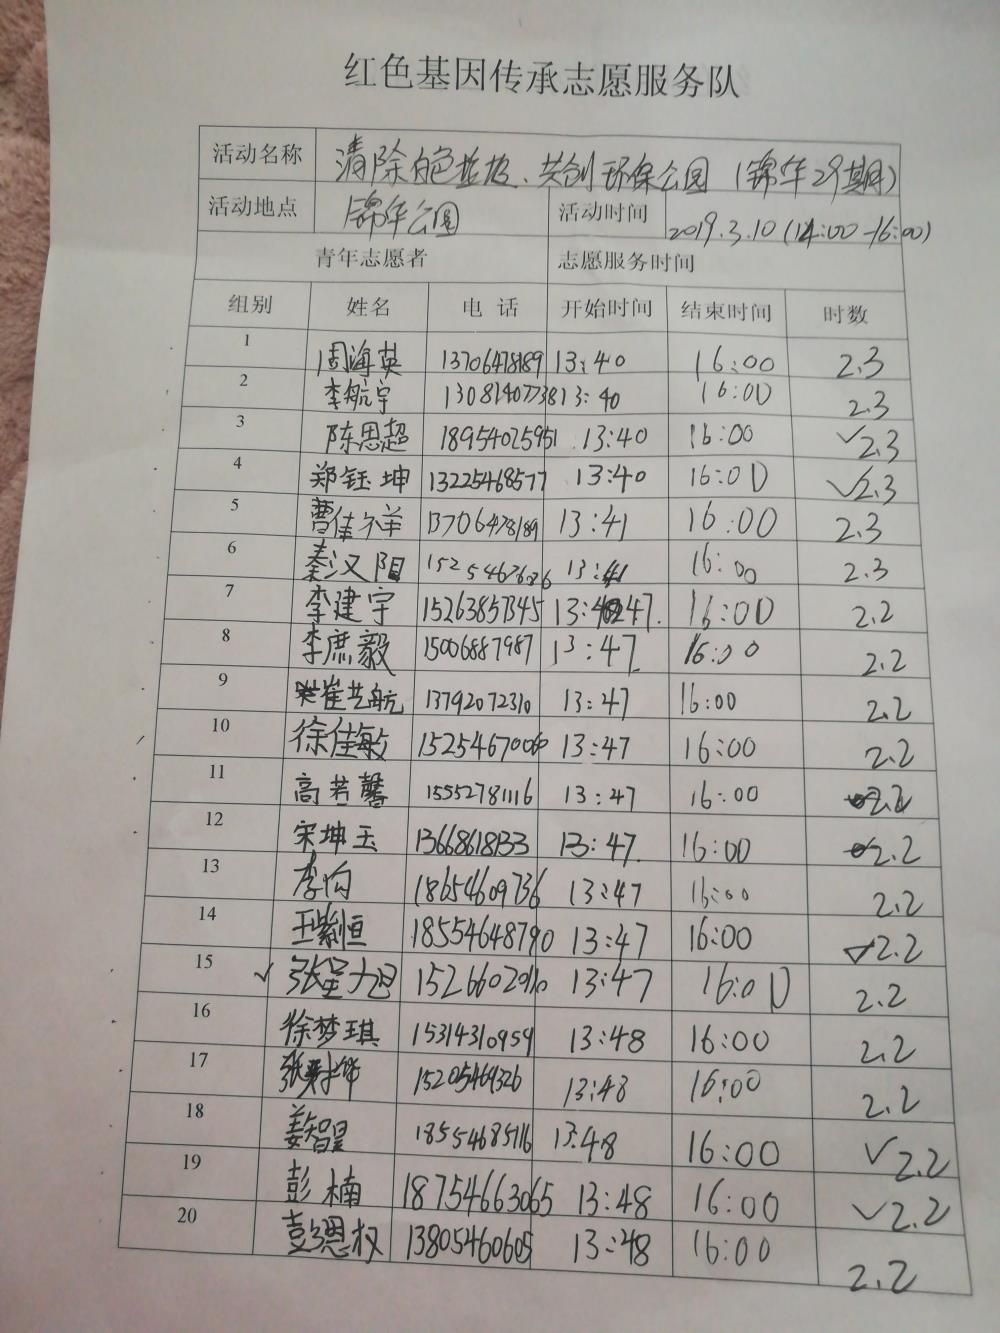 红色基因传承志愿服务队
活动名称 清除白色垃圾、共创环保公园 (锦华29期)
活动地点 锦华公园 活动时间 2019.3.10 (14:00-16:00)
青年志愿者 志愿服务时间
组别 姓名 电话 开始时间 结束时间 时数
1 周海英 13706478189 13:40 16:00 2.3
2 李航宇 13081407738 13:40 16:00 2.3
3 陈思超 18954025951 13:40 16:00 ✓2.3
4 郑钰坤 13225468577 13:40 16:00 ✓2.3
5 曹佳 13706478189 13:41 16:00 2.3
6 秦汉阳 13:41 16:00 2.3
7 李建宇 15263857345 13:47 16:00 2.2
8 李庶毅 15006887987 13:47 16:00 2.2
9 崔艺航 13792072310 13:47 16:00 2.2
10 徐佳敏 15254670060 13:47 16:00 2.2
11 高若馨 15552781116 13:47 16:00 2.2
12 宋坤玉 13668618133 13:47 16:00 2.2
13 李昀 18654609736 13:47 16:00 2.2
14 王紫恒 18554648790 13:47 16:00 2.2
15 ✓ 张呈旭 13:47 16:00 2.2
16 徐梦琪 15314310959 13:48 16:00 2.2
17 15205469326 13:48 16:00 2.2
18 姜智呈 18554685116 13:48 16:00 ✓2.2
19 彭楠 18754663065 13:48 16:00 ✓2.2
20 彭恩权 13805460605 13:48 16:00 2.2